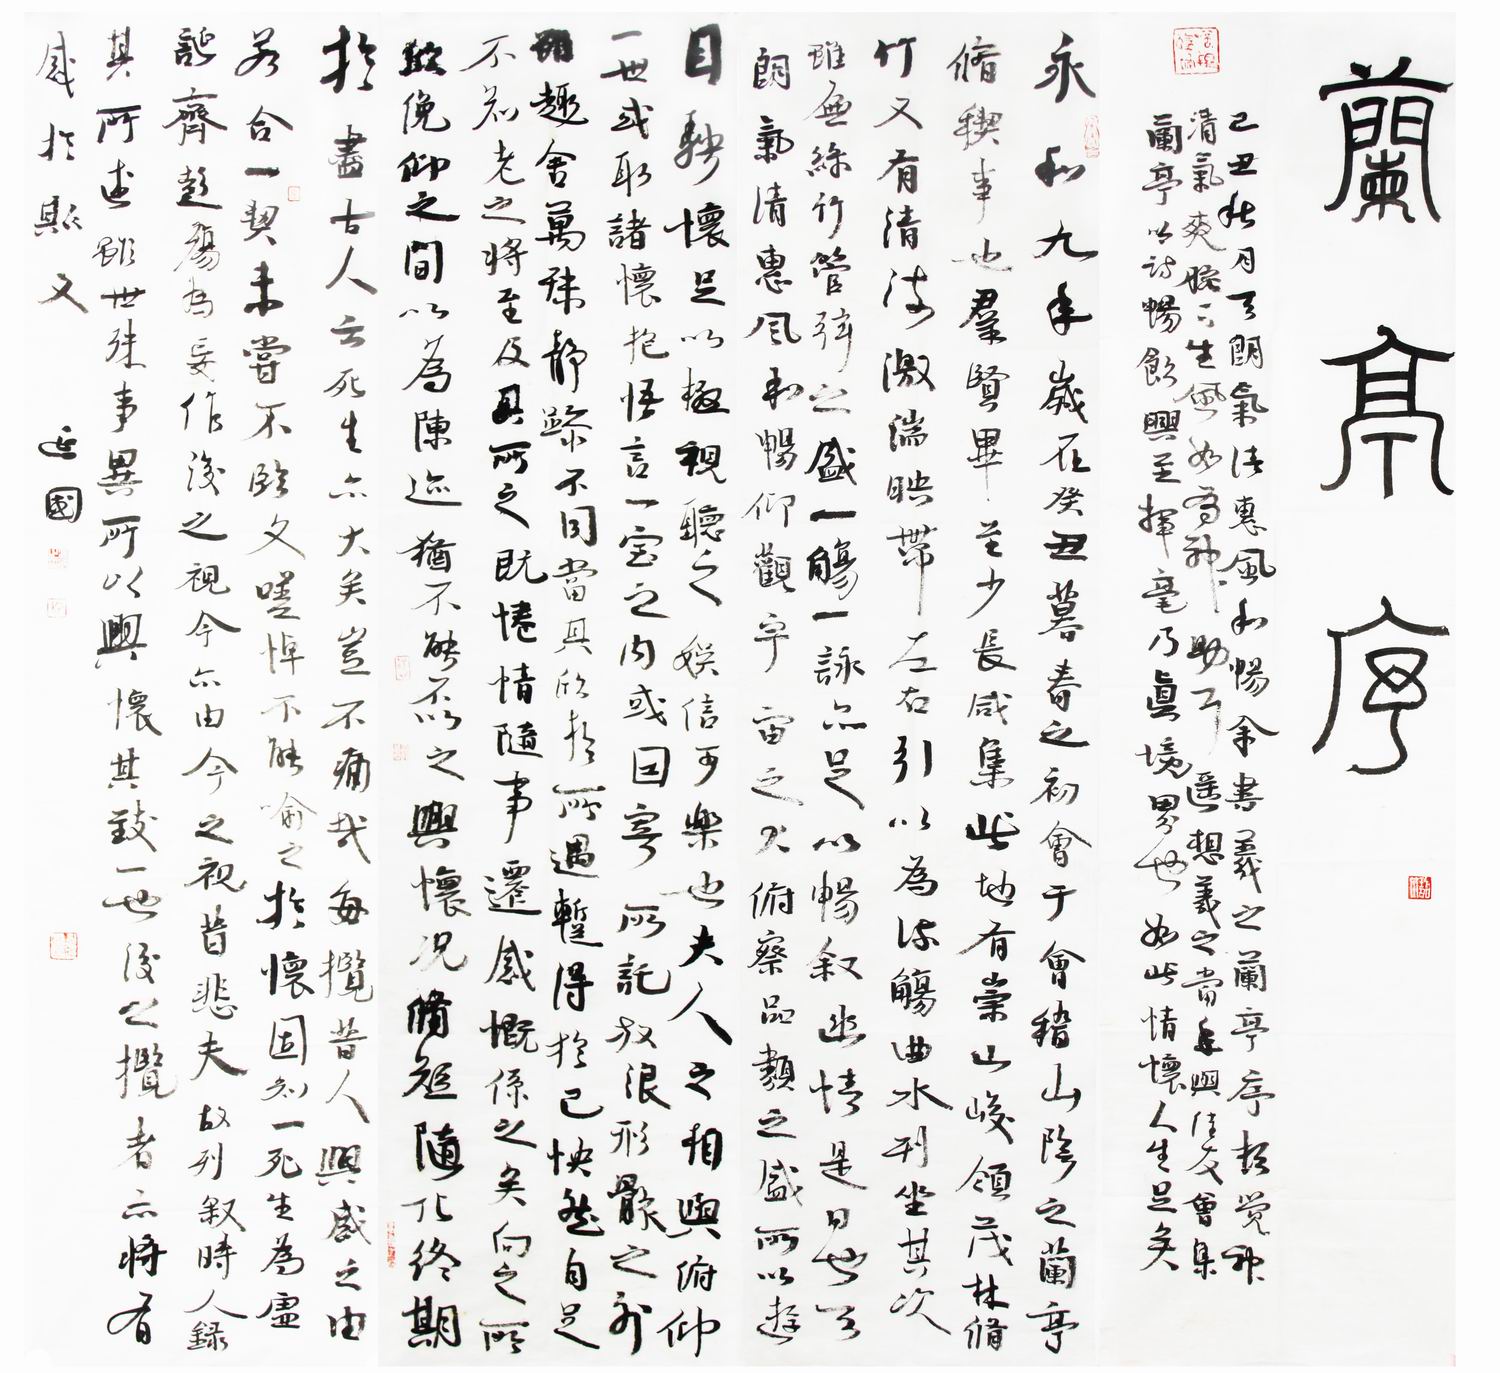 蘭亭序
己丑秋月天朗氣清惠風和暢余書羲之蘭亭序頓覺神
清氣爽腕下生風如有神助耳遥想羲之當年與佳友會集
蘭亭以詩暢飲興至揮毫乃真境界也如此情懷人生足矣
永和九年歲在癸丑暮春之初會于會稽山陰之蘭亭
脩稧事也羣賢畢至少長咸集此地有崇山峻領茂林脩
竹又有清流激湍映帶左右引以為流觴曲水列坐其次
雖無絲竹管弦之盛一觴一詠亦足以暢叙幽情是日也天
朗氣清惠風和暢仰觀宇宙之大俯察品類之盛所以遊
目騁懷足以極視聽之娱信可樂也夫人之相與俯仰
一世或取諸懷抱悟言一室之内或因寄所託放浪形骸之外
雖趣舍萬殊静躁不同當其欣於所遇暫得於己怏然自足
不知老之將至及其所之既惓情隨事遷感慨係之矣向之所
欣俛仰之間以為陳迹猶不能不以之興懷況脩短隨化終期
於盡古人云死生亦大矣豈不痛哉每攬昔人興感之由
若合一契未嘗不臨文嗟悼不能喻之於懷固知一死生為虛
誕齊彭殤為妄作後之視今亦由今之視昔悲夫故列叙時人録
其所述雖世殊事異所以興懷其致一也後之攬者亦將有
感於斯文 延國